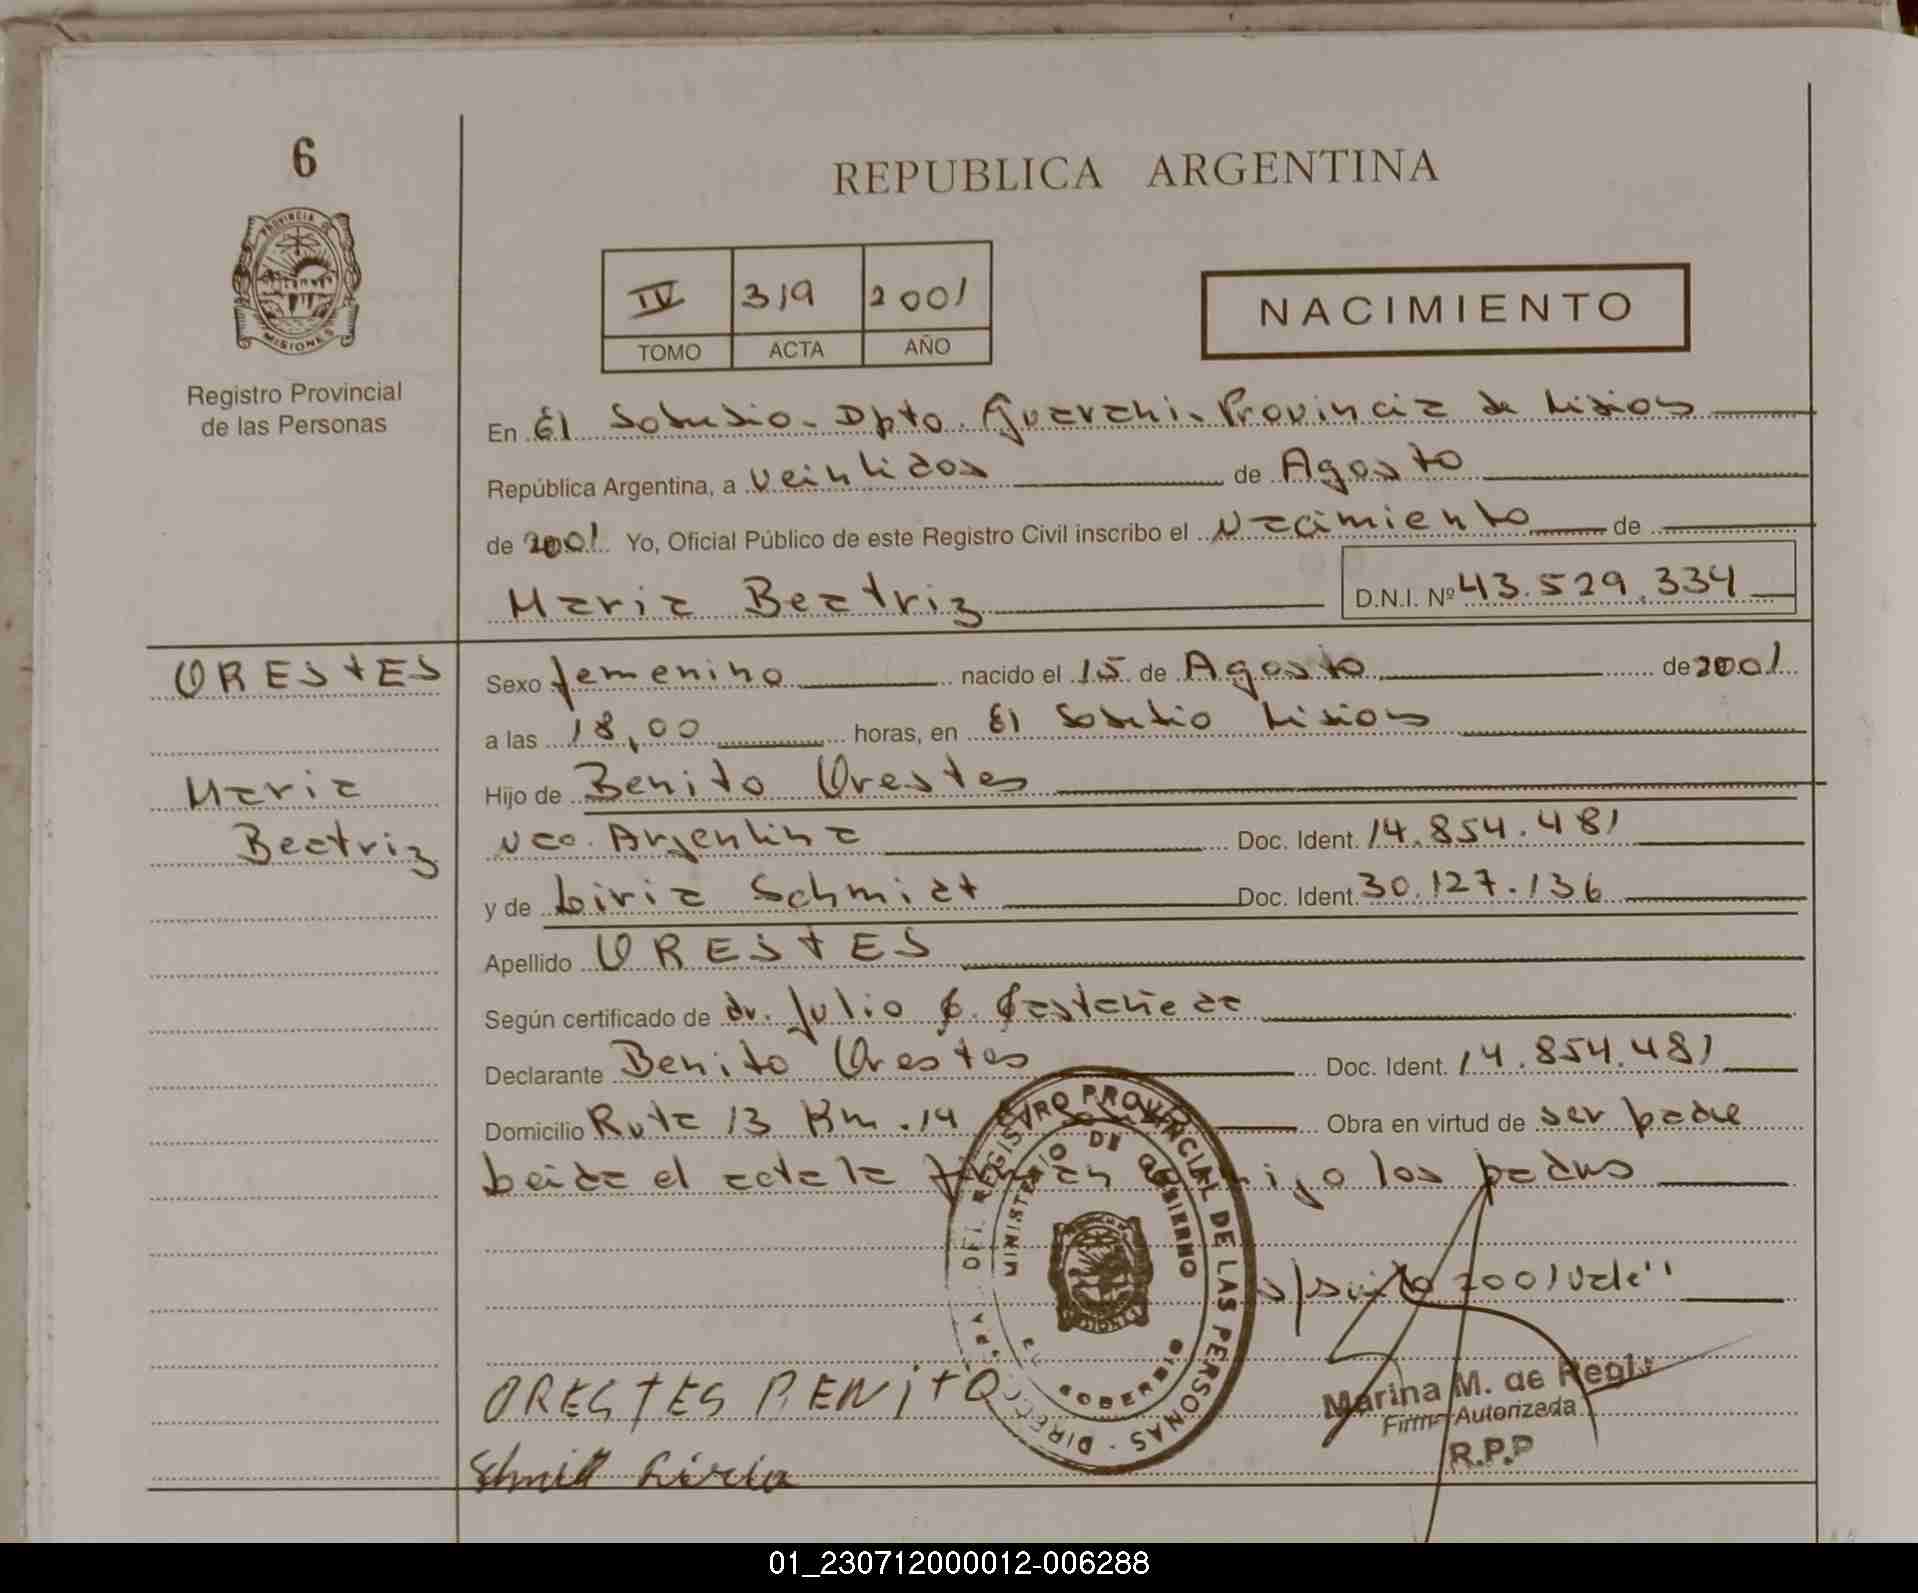 6
REPUBLICA ARGENTINA
PROVINCIA DE
MISIONES
Registro Provincial
de las Personas
IV 319 2001
TOMO ACTA AÑO
NACIMIENTO
En El Soberbio - Dpto. Guarani - Provincia de Misiones
República Argentina, a veintidos de Agosto
de 2001 Yo, Oficial Público de este Registro Civil inscribo el Nacimiento de
Maria Beatriz D.N.I. Nº 43.529.334
ORESTES
Maria
Beatriz
Sexo femenino nacido el 15 de Agosto de 2001
a las 18,00 horas, en El Soberbio Misiones
Hijo de Benito Orestes
Nco. Argentina Doc. Ident. 14.854.481
y de Liria Schmidt Doc. Ident. 30.127.136
Apellido ORESTES
Según certificado de dr. Julio C. Castañeda
Declarante Benito Orestes Doc. Ident. 14.854.481
Domicilio Ruta 13 Km. 14 Obra en virtud de ser padre
Leida el acta la firman los padres
2001 Vale"
DEL REGISTRO PROVINCIAL DE LAS PERSONAS - DIREC
MINISTERIO DE GOBIERNO
EL SOBERBIO
ORESTES BENITO
Marina M. de Regis
Firma Autorizada
R.P.P
Schmitt Liria
01_230712000012-006288